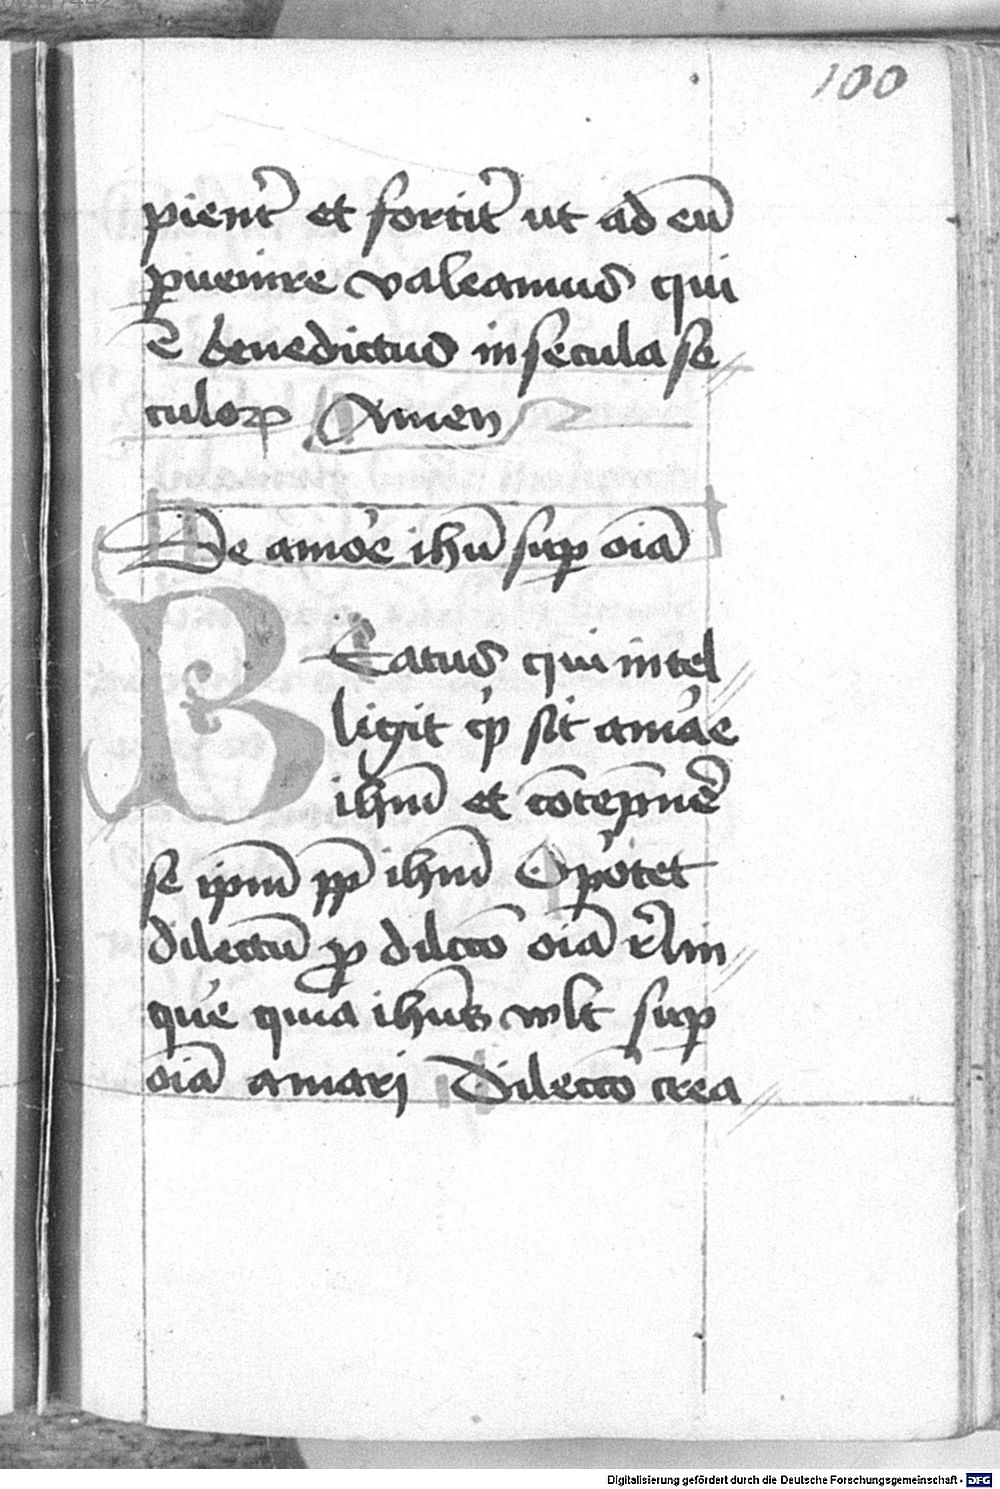 100
pient᷑ et fortit᷑ ut ad eū
ꝑuenire valeamus qui
ē benedictus in secula se//
culoꝝ Amen
De amoͬe ihū suꝑ oīa
BEatus qui intel//
ligit qͥd sit amaͬe
ihm̄ et cōtēpnẽ
se ipm̄ ꝓpt ihm̄ Oꝑotet
dilectū ꝓ dilcō oīa relin//
que quia ihus wlt suꝑ
oīa amari Dilectō crea//
Digitalisierung gefördert durch die Deutsche Forschungsgemeinschaft - DFG